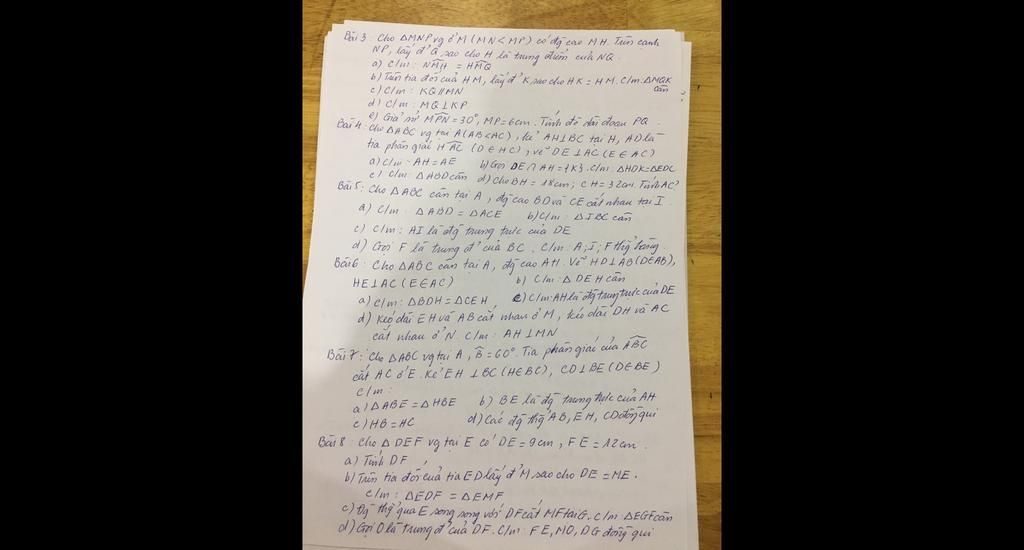 Bài 3: Cho ΔMNP vg ở M (MN < MP) có đg cao MH. Trên cạnh
NP, lấy đ' Q sao cho H là trung điểm của NQ.
a) C/m: NMH = HMQ
b) Trên tia đối của HM, lấy đ' K sao cho HK = HM. C/m: ΔMQK
cân
c) C/m: KQ // MN
d) C/m: MQ ⊥ KP
e) Giả sử MPN = 30°, MP = 6cm. Tính độ dài đoạn PQ.
Bài 4: Cho ΔABC vg tại A (AB < AC), kẻ AH ⊥ BC tại H, AD là
tia phân giác HAC (D ∈ HC), vẽ DE ⊥ AC (E ∈ AC)
a) C/m: AH = AE b) Gọi DE ∩ AH = {K}. C/m: ΔHDK = ΔEDC
c) C/m: ΔABD cân d) Cho BH = 18cm; CH = 32cm. Tính AC?
Bài 5: Cho ΔABC cân tại A, đg cao BD và CE cắt nhau tại I.
a) C/m: ΔABD = ΔACE b) C/m: ΔIBC cân
c) C/m: AI là đg trung trực của DE
d) Gọi F là trung đ' của BC. C/m: A; I; F thg hàng.
Bài 6: Cho ΔABC cân tại A, đg cao AH. Vẽ HD ⊥ AB (D∈AB),
HE ⊥ AC (E ∈ AC) b) C/m: Δ DEH cân
a) C/m: ΔBDH = ΔCEH, c) C/m: AH là đg trung trực của DE
d) Kéo dài EH và AB cắt nhau ở M, kéo dài DH và AC
cắt nhau ở N. C/m: AH ⊥ MN
Bài 7: Cho ΔABC vg tại A, B = 60°. Tia phân giác của ABC
cắt AC ở E. Kẻ EH ⊥ BC (H∈BC), CD ⊥ BE (D∈BE)
C/m:
a) ΔABE = ΔHBE b) BE là đg trung trực của AH
c) HB = HC d) Các đg thg AB, EH, CD đồng qui
Bài 8: Cho Δ DEF vg tại E có DE = 9cm, FE = 12cm.
a) Tính DF
b) Trên tia đối của tia ED lấy đ' M sao cho DE = ME.
C/m: ΔEDF = ΔEMF
c) Đg thg qua E song song với DF cắt MF tại G. C/m ΔEGF cân
d) Gọi O là trung đ' của DF. C/m: FE, MO, DG đồng qui